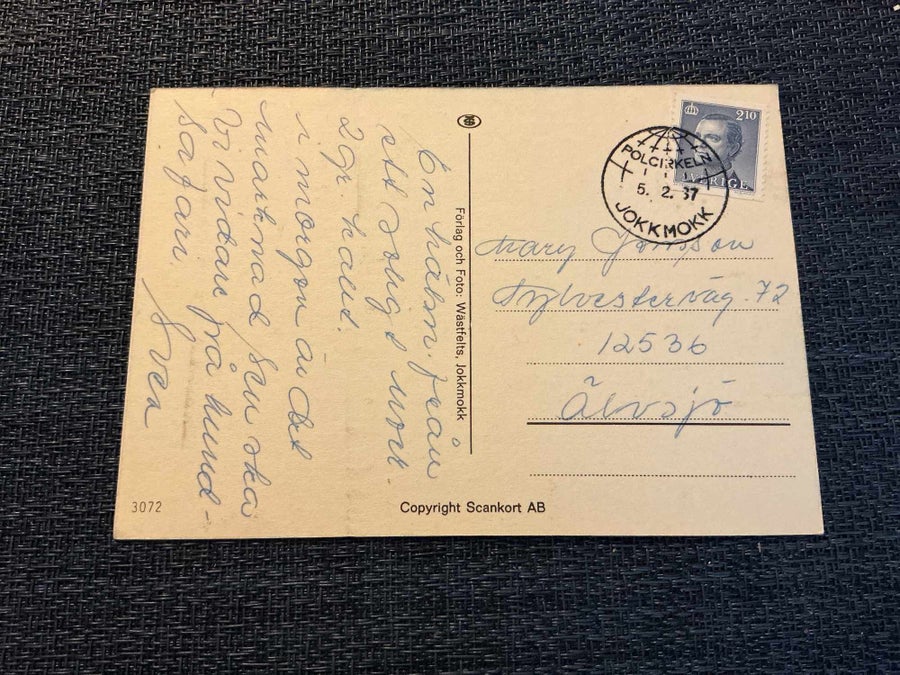 En hälsn. från
ett soligt norr.
2 gr kallt.
i morgon är det
marknad sen ska
vi vidare på hund-
safari Sven
Förlag och Foto: Wästfelts, Jokkmokk
210
SVERIGE
POLCIRKELN
5. 2. 87
JOKKMOKK
Mary Jonsson
Sylvesterväg. 72
12536
Älvsjö
3072
Copyright Scankort AB